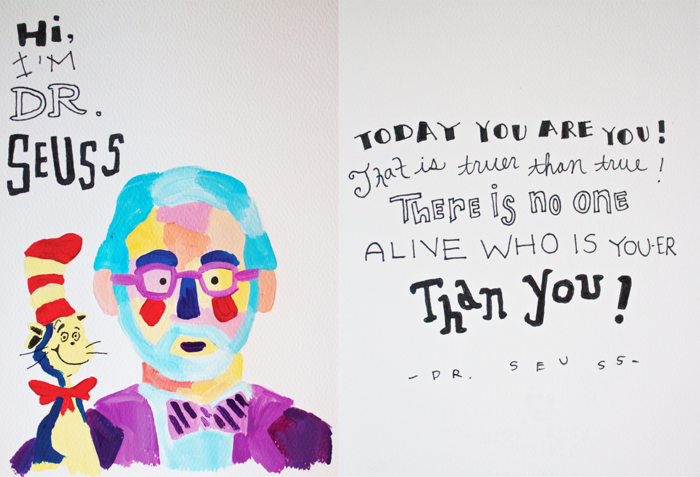 Hi,
I'M
DR.
SEUSS
TODAY YOU ARE YOU!
That is truer than true!
There is no one
ALIVE WHO IS YOU-ER
Than you!
- DR. SEUSS -